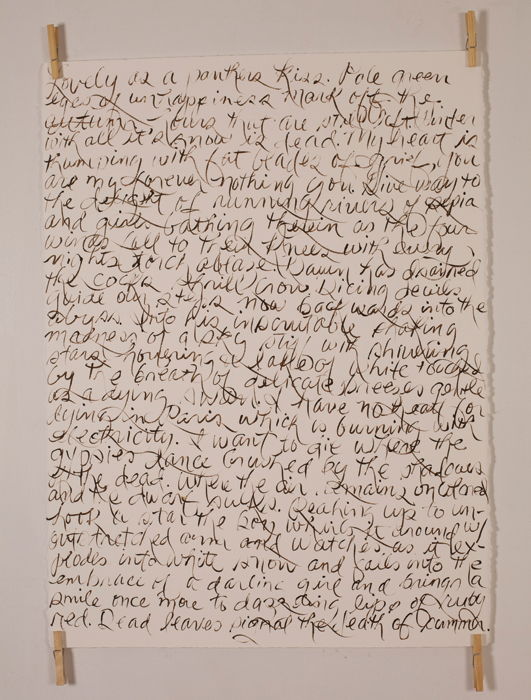 Lovely as a panthers kiss. Pale green
eyes of unhappiness mark off the
autumn hours that are still left. Winter
with all it's snow is dead. My heart is
thumping with fat blades of grief, you
are my forever nothing you. Give way to
the delight of running rivers of sepia
and girls bathing therein as the four
winds fall to their knees with every
nights torch ablaze. Dawn has drained
the cocks shrill crow. Dicing jewels
guide our steps now backwards into the
abyss. Into its inscrutable shaking
madness of a sky still with shivering
stars hovering a lake of white touched
by the breath of delicate breezes gentle
as a dying swan. I have no heat for
lying in Paris which is burning with
electricity. I want to die where the
gypsies dance crushed by the shadows
of the dead. Where the air remains on
and the dwarf sucks. Reaching up to un-
hook a star the boy whirls it around w/
outstretched arm and watches as it ex-
plodes into white snow and sails into the
embrace of a darling girl and brings a
smile once more to dazzling lips of ruby
red. Dead leaves signal the death of summer.